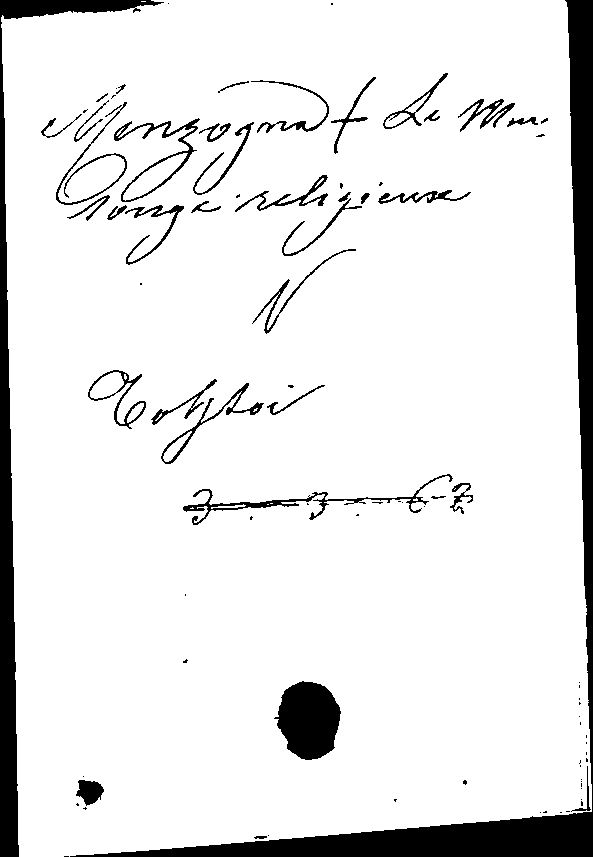 Menzogna ( Le Men-
songe religieuse
V
Tolstoi
3 . 3 . 6